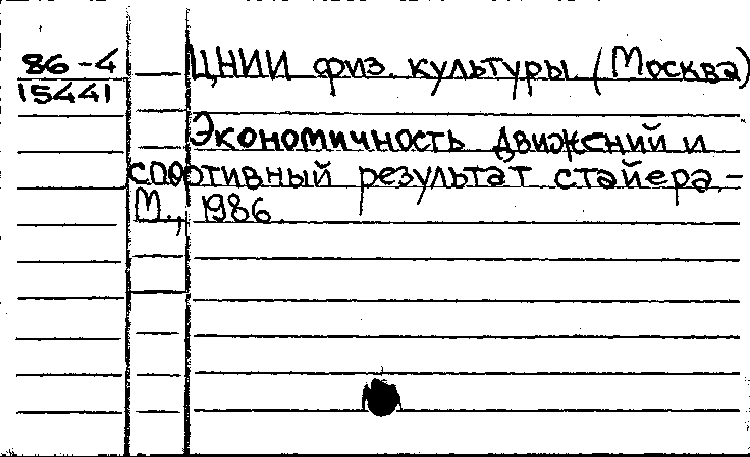 86-4
15441
ЦНИИ физ. культуры (Москва)
Экономичность движений и
спортивный результат стайера.-
М., 1986.